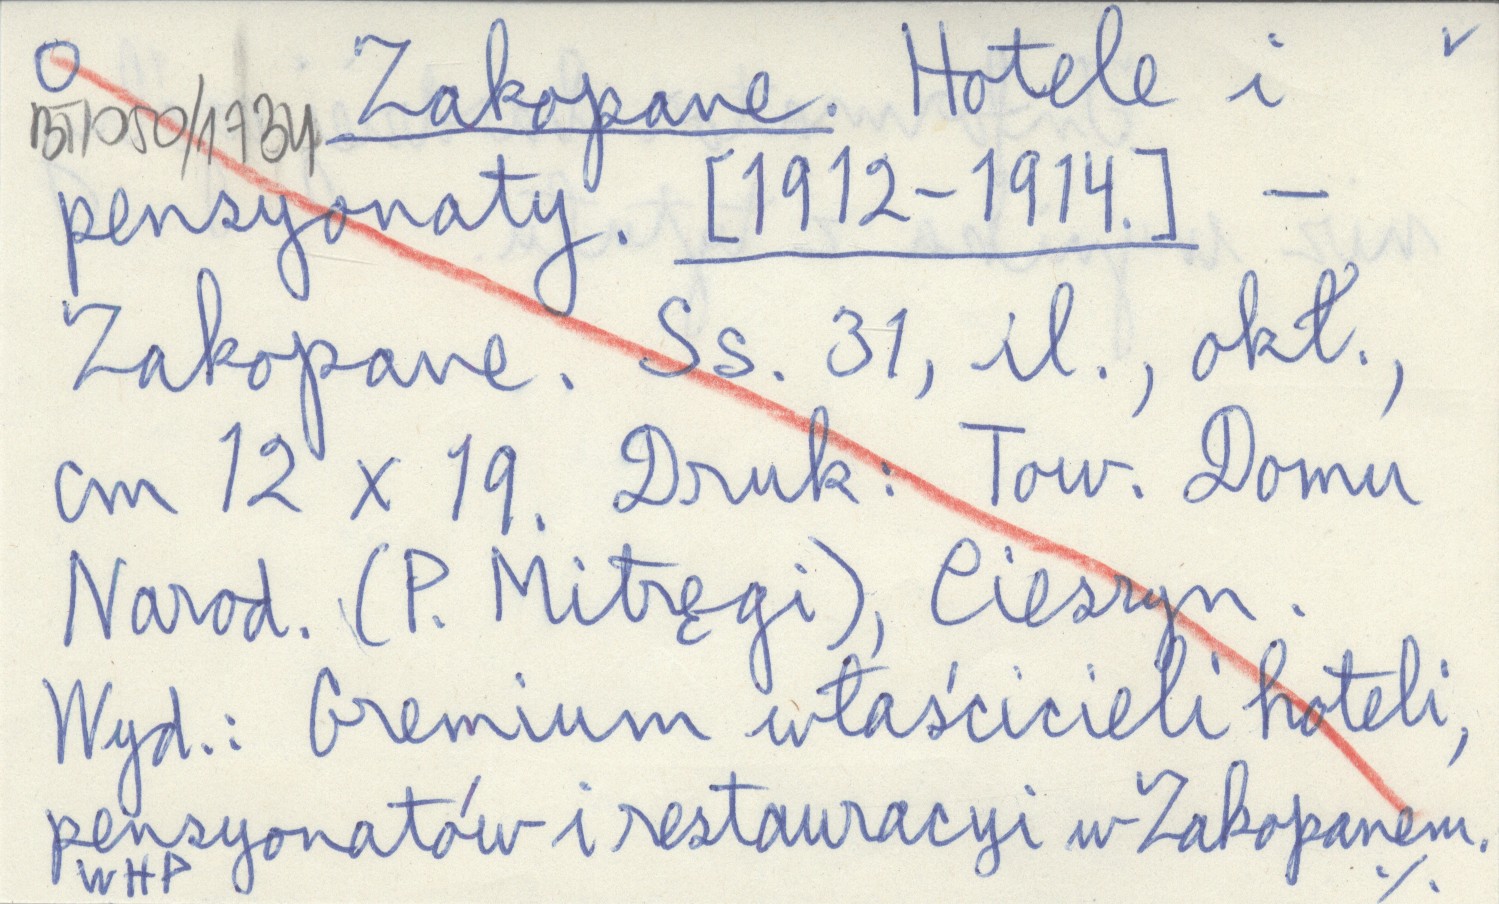 Zakopane. Hotele i
pensyonaty. [1912-1914.] –
Zakopane. Ss. 31, il., okł.,
cm 12 x 19. Druk: Tow. Domu
Narod. (P. Mitręgi), Cieszyn.
Wyd.: Gremium właścicieli hoteli,
pensyonatów i restauracyi w Zakopanem.
WHP ./.